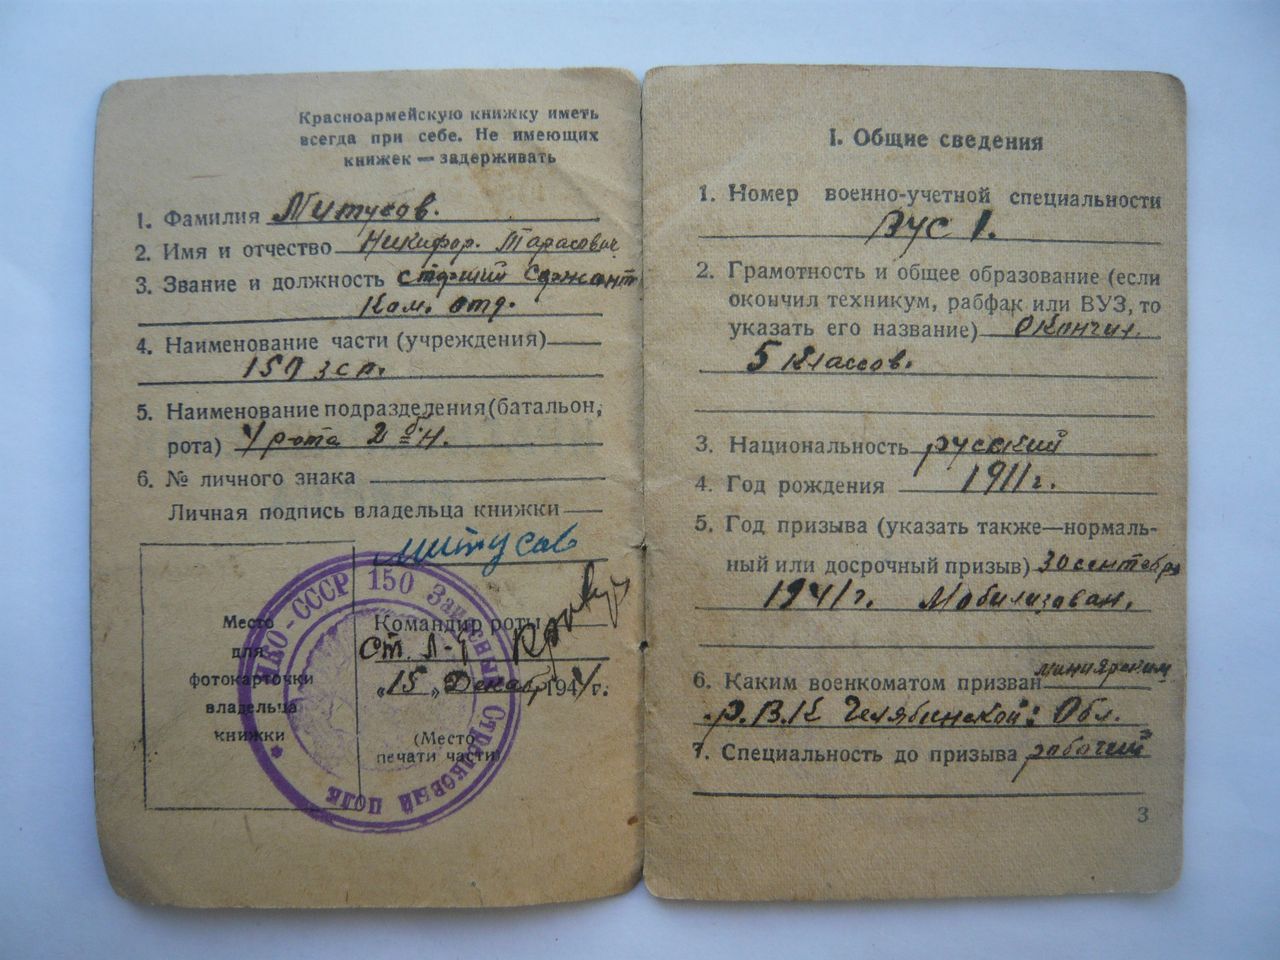 Красноармейскую книжку иметь
всегда при себе. Не имеющих
книжек — задерживать
1. Фамилия Митусов.
2. Имя и отчество Никифор. Тарасович
3. Звание и должность старший Сержант
Ком. отд.
4. Наименование части (учреждения)
150 зсп.
5. Наименование подразделения (батальон,
рота) 4 рота 2 б-н.
6. № личного знака
Личная подпись владельца книжки
Митусов
Место
для
фотокарточки
владельца
книжки
Командир роты
Ст. л-т
„15„ Декабр 1944г.
(Место
печати части)
НКО-СССР 150 Запасный Стрелковый полк *
I. Общие сведения
1. Номер военно-учетной специальности
ВУС 1.
2. Грамотность и общее образование (если
окончил техникум, рабфак или ВУЗ, то
указать его название) Окончил.
5 классов.
3. Национальность русский
4. Год рождения 1911г.
5. Год призыва (указать также—нормаль-
ный или досрочный призыв) 30 сентября
1941г. Мобилизован.
6. Каким военкоматом призван миниярским
р.В.К Челябинской: Обл.
7. Специальность до призыва рабочий
3